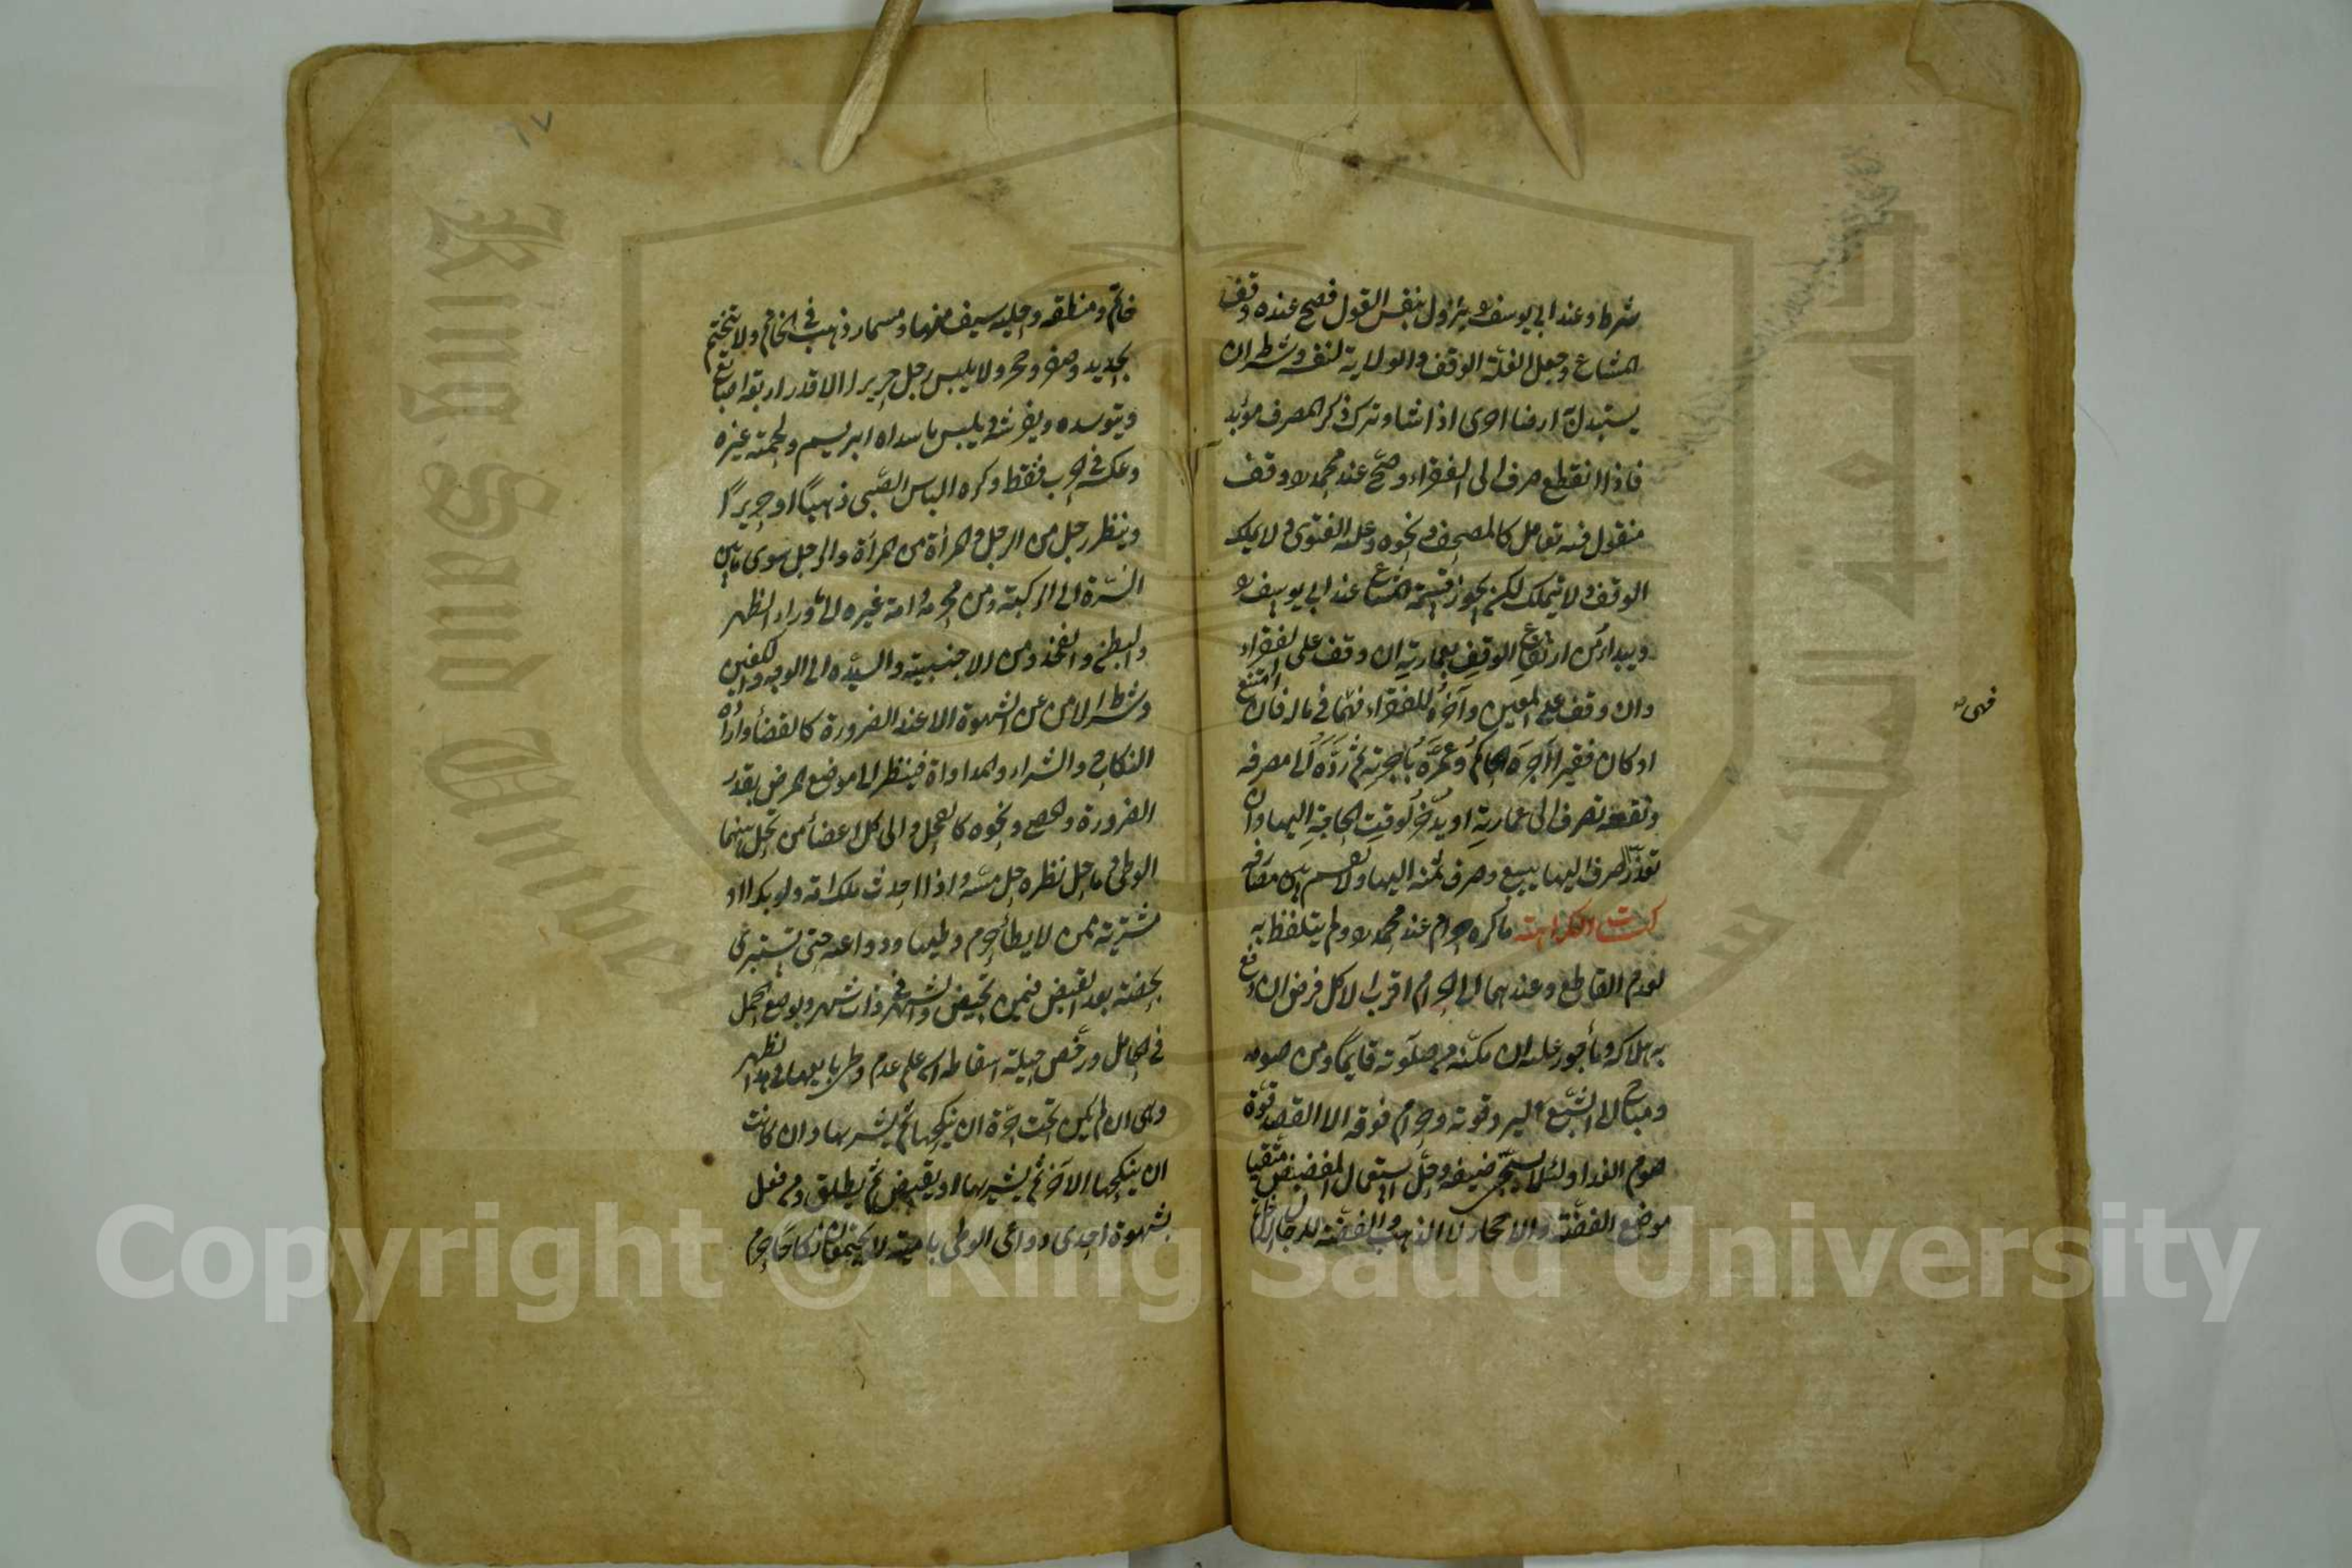 شرط وعند ابي يوسف يزول بنفس القول فصح عنده وقف
المشاع وجعل الغلة الوقف والولاية لنفسه وشرط ان
يستبدل به ارضا اخرى اذا شاء وترك ذكر المصرف مؤبد
فاذا انقطع صرف الى الفقراء وصح عند محمد وقف
منقول فيه تعامل كالمصحف ونحوه وعليه الفتوى ولا يملك
الوقف ولا يتملك لكن يجوز قسمة المشاع عند ابي يوسف
ويبدأ من ارتفاع الوقف بعمارته ان وقف على الفقراء
وان وقف على المعين وآخره للفقراء فهي في ماله فان امتنع
او كان فقيرا آجره الحاكم وعمره باجرته ثم رده الى مصرفه
ونقضه تصرف الى عمارته او يدخر لوقت الحاجة اليها وان
تعذر صرف اليها يبيع وصرف ثمنه اليها ولا يقسم بين مصارفه
كتاب الكراهية ما كره حرام عند محمد ولم يتلفظ به
لعدم القاطع وعندهما الى الحرام اقرب الاكل فرض ان دفع
به هلاكه ومأجور عليه ان مكنه من صلوته قايما ومن صومه
ومباح الى الشبع ليزيد قوته وحرام فوقه الا لقصد قوة
صوم الغد او لئلا يستحي ضيفه وحل استعمال المفضض متقيا
موضع الفضة والاحجار لا الذهب والفضة للرجال الا
فهي
خاتم ومنطقة وحلية سيف منها ومسمار ذهب في الخاتم ولا يتختم
بحديد وصفر وحجر ولا يلبس رجل حريرا الا قدر اربعة اصابع
ويتوسده ويفرشه ويلبس ما سداه ابريسم ولحمته غيره
وعكسه في الحرب فقط وكره الباس الصبي ذهبا او حريرا
وينظر رجل من الرجل والمرأة من المرأة والرجل سوى ما بين
السرة الى الركبة ومن محرمه وامة غيره الى ما وراء الظهر
والبطن والفخذ ومن الاجنبية والسيدة الى الوجه والكفين
وشرط الامن عن الشهوة الا عند الضرورة كالقضاء واراده
النكاح والشراء والمداواة فينظر الى موضع المرض بقدر
الضرورة والخصي ونحوه كالفحل والى كل اعضاء من يحل بينهما
الوطئ وما حل نظره حل مسه واذا احدث ملك امة ولو بكرا او
مشترية ممن لا يطأ حرم وطيها ودواعيه حتى يستبرئ
بحيضة بعد القبض فيمن تحيض وشهر في ذات شهر وبوضع الحمل
في الحامل ورخص حيلة اسقاطه ان علم عدم وطئ بايعها في هذا الطهر
وهي ان لم يكن تحت حرة ان ينكحها ثم يشتريها وان كانت
ان ينكحها الآخر ثم يشتريها او يقبض ثم يطلق ومن فعل
بشهوة احدى دواعي الوطئ بامتيه لا يجتمعان نكاحا حرم